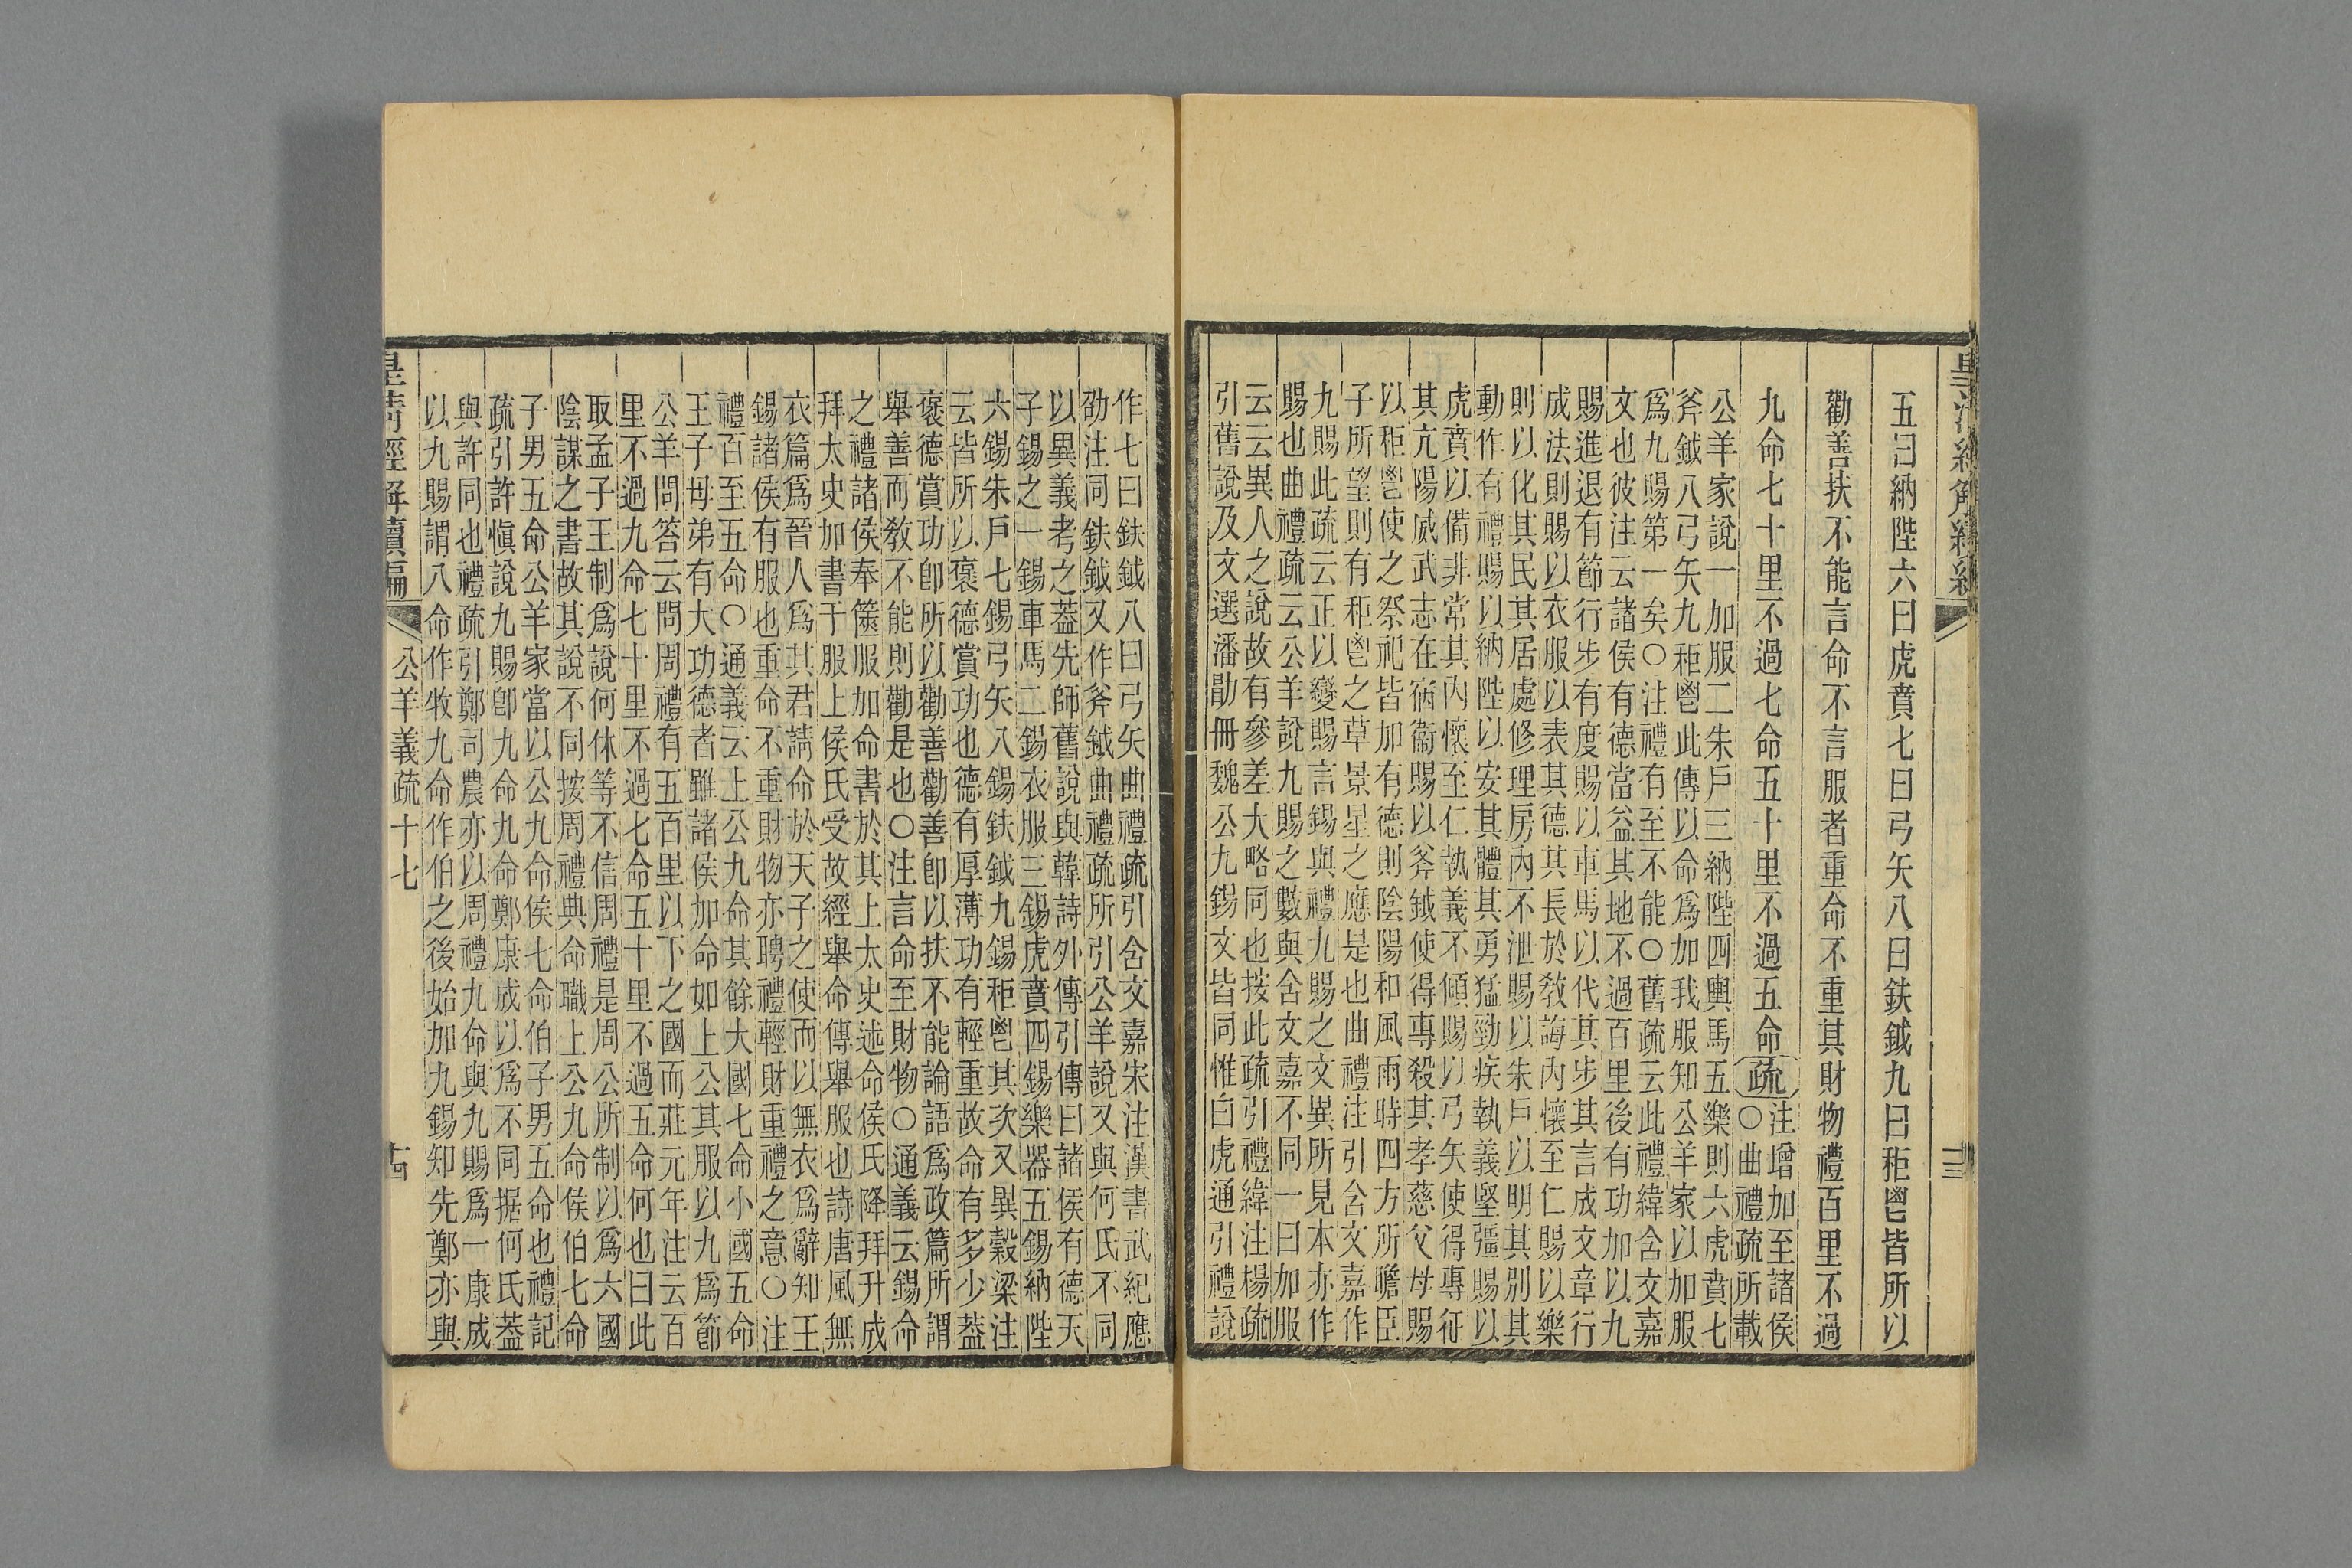 五曰納陛六曰虎賁七曰弓矢八曰鈇鉞九曰秬鬯皆所以
勸善扶不能言命不言服者重命不重其財物禮百里不過
九命七十里不過七命五十里不過五命疏注增加至諸侯
○曲禮疏所載
公羊家說一加服二朱戶三納陛四輿馬五樂則六虎賁七
斧鉞八弓矢九秬鬯此傳以命爲加我服知公羊家以加服
爲九賜第一矣○注禮有至不能○舊疏云此禮緯含文嘉
文也彼注云諸侯有德當益其地不過百里後有功加以九
賜進退有節行步有度賜以車馬以代其步其言成文章行
成法則賜以衣服以表其德其長於教誨內懷至仁賜以樂
則以化其民其居處修理房內不泄賜以朱戶以明其別其
動作有禮賜以納陛以安其體其勇猛勁疾執義堅彊賜以
虎賁以備非常其內懷至仁執義不傾賜以弓矢使得專征
其亢陽威武志在宿衞賜以斧鉞使得專殺其孝慈父母賜
以秬鬯使之祭祀皆加有德則陰陽和風雨時四方所瞻臣
子所望則有秬鬯之草景星之應是也曲禮注引含文嘉作
九賜此疏云正以變賜言錫與禮九賜之文異所見本亦作
賜也曲禮疏云公羊說九賜之數與含文嘉不同一曰加服
云云異人之說故有參差大略同也按此疏引禮緯注楊疏
引舊說及文選潘勖冊魏公九錫文皆同惟白虎通引禮說
作七曰鈇鉞八曰弓矢曲禮疏引含文嘉宋注漢書武紀應
劭注同鈇鉞又作斧鉞曲禮疏所引公羊說又與何氏不同
以異義考之葢先師舊說與韓詩外傳引傳曰諸侯有德天
子錫之一錫車馬二錫衣服三錫虎賁四錫樂器五錫納陛
六錫朱戶七錫弓矢八錫鈇鉞九錫秬鬯其次又異穀梁注
云皆所以褒德賞功也德有厚薄功有輕重故命有多少葢
褒德賞功卽所以勸善勸善卽以扶不能論語爲政篇所謂
舉善而教不能則勸是也○注言命至財物○通義云錫命
之禮諸侯奉篋服加命書於其上太史述命侯氏降拜升成
拜太史加書于服上侯氏受故經舉命傳舉服也詩唐風無
衣篇爲晉人爲其君請命於天子之使而以無衣爲辭知王
錫諸侯有服也重命不重財物亦聘禮輕財重禮之意○注
禮百至五命○通義云上公九命其餘大國七命小國五命
王子母弟有大功德者雖諸侯加命如上公其服以九爲節
公羊問答云問周禮有五百里以下之國而莊元年注云百
里不過九命七十里不過七命五十里不過五命何也曰此
取孟子王制爲說何休等不信周禮是周公所制以爲六國
陰謀之書故其說不同按周禮典命職上公九命侯伯七命
子男五命公羊家當以公九命侯七命伯子男五命也禮記
疏引許慎說九賜卽九命九命鄭康成以爲不同据何氏葢
與許同也禮疏引鄭司農亦以周禮九命與九賜爲一康成
以九賜謂八命作牧九命作伯之後始加九錫知先鄭亦與
皇清經解續編
公羊義疏十七